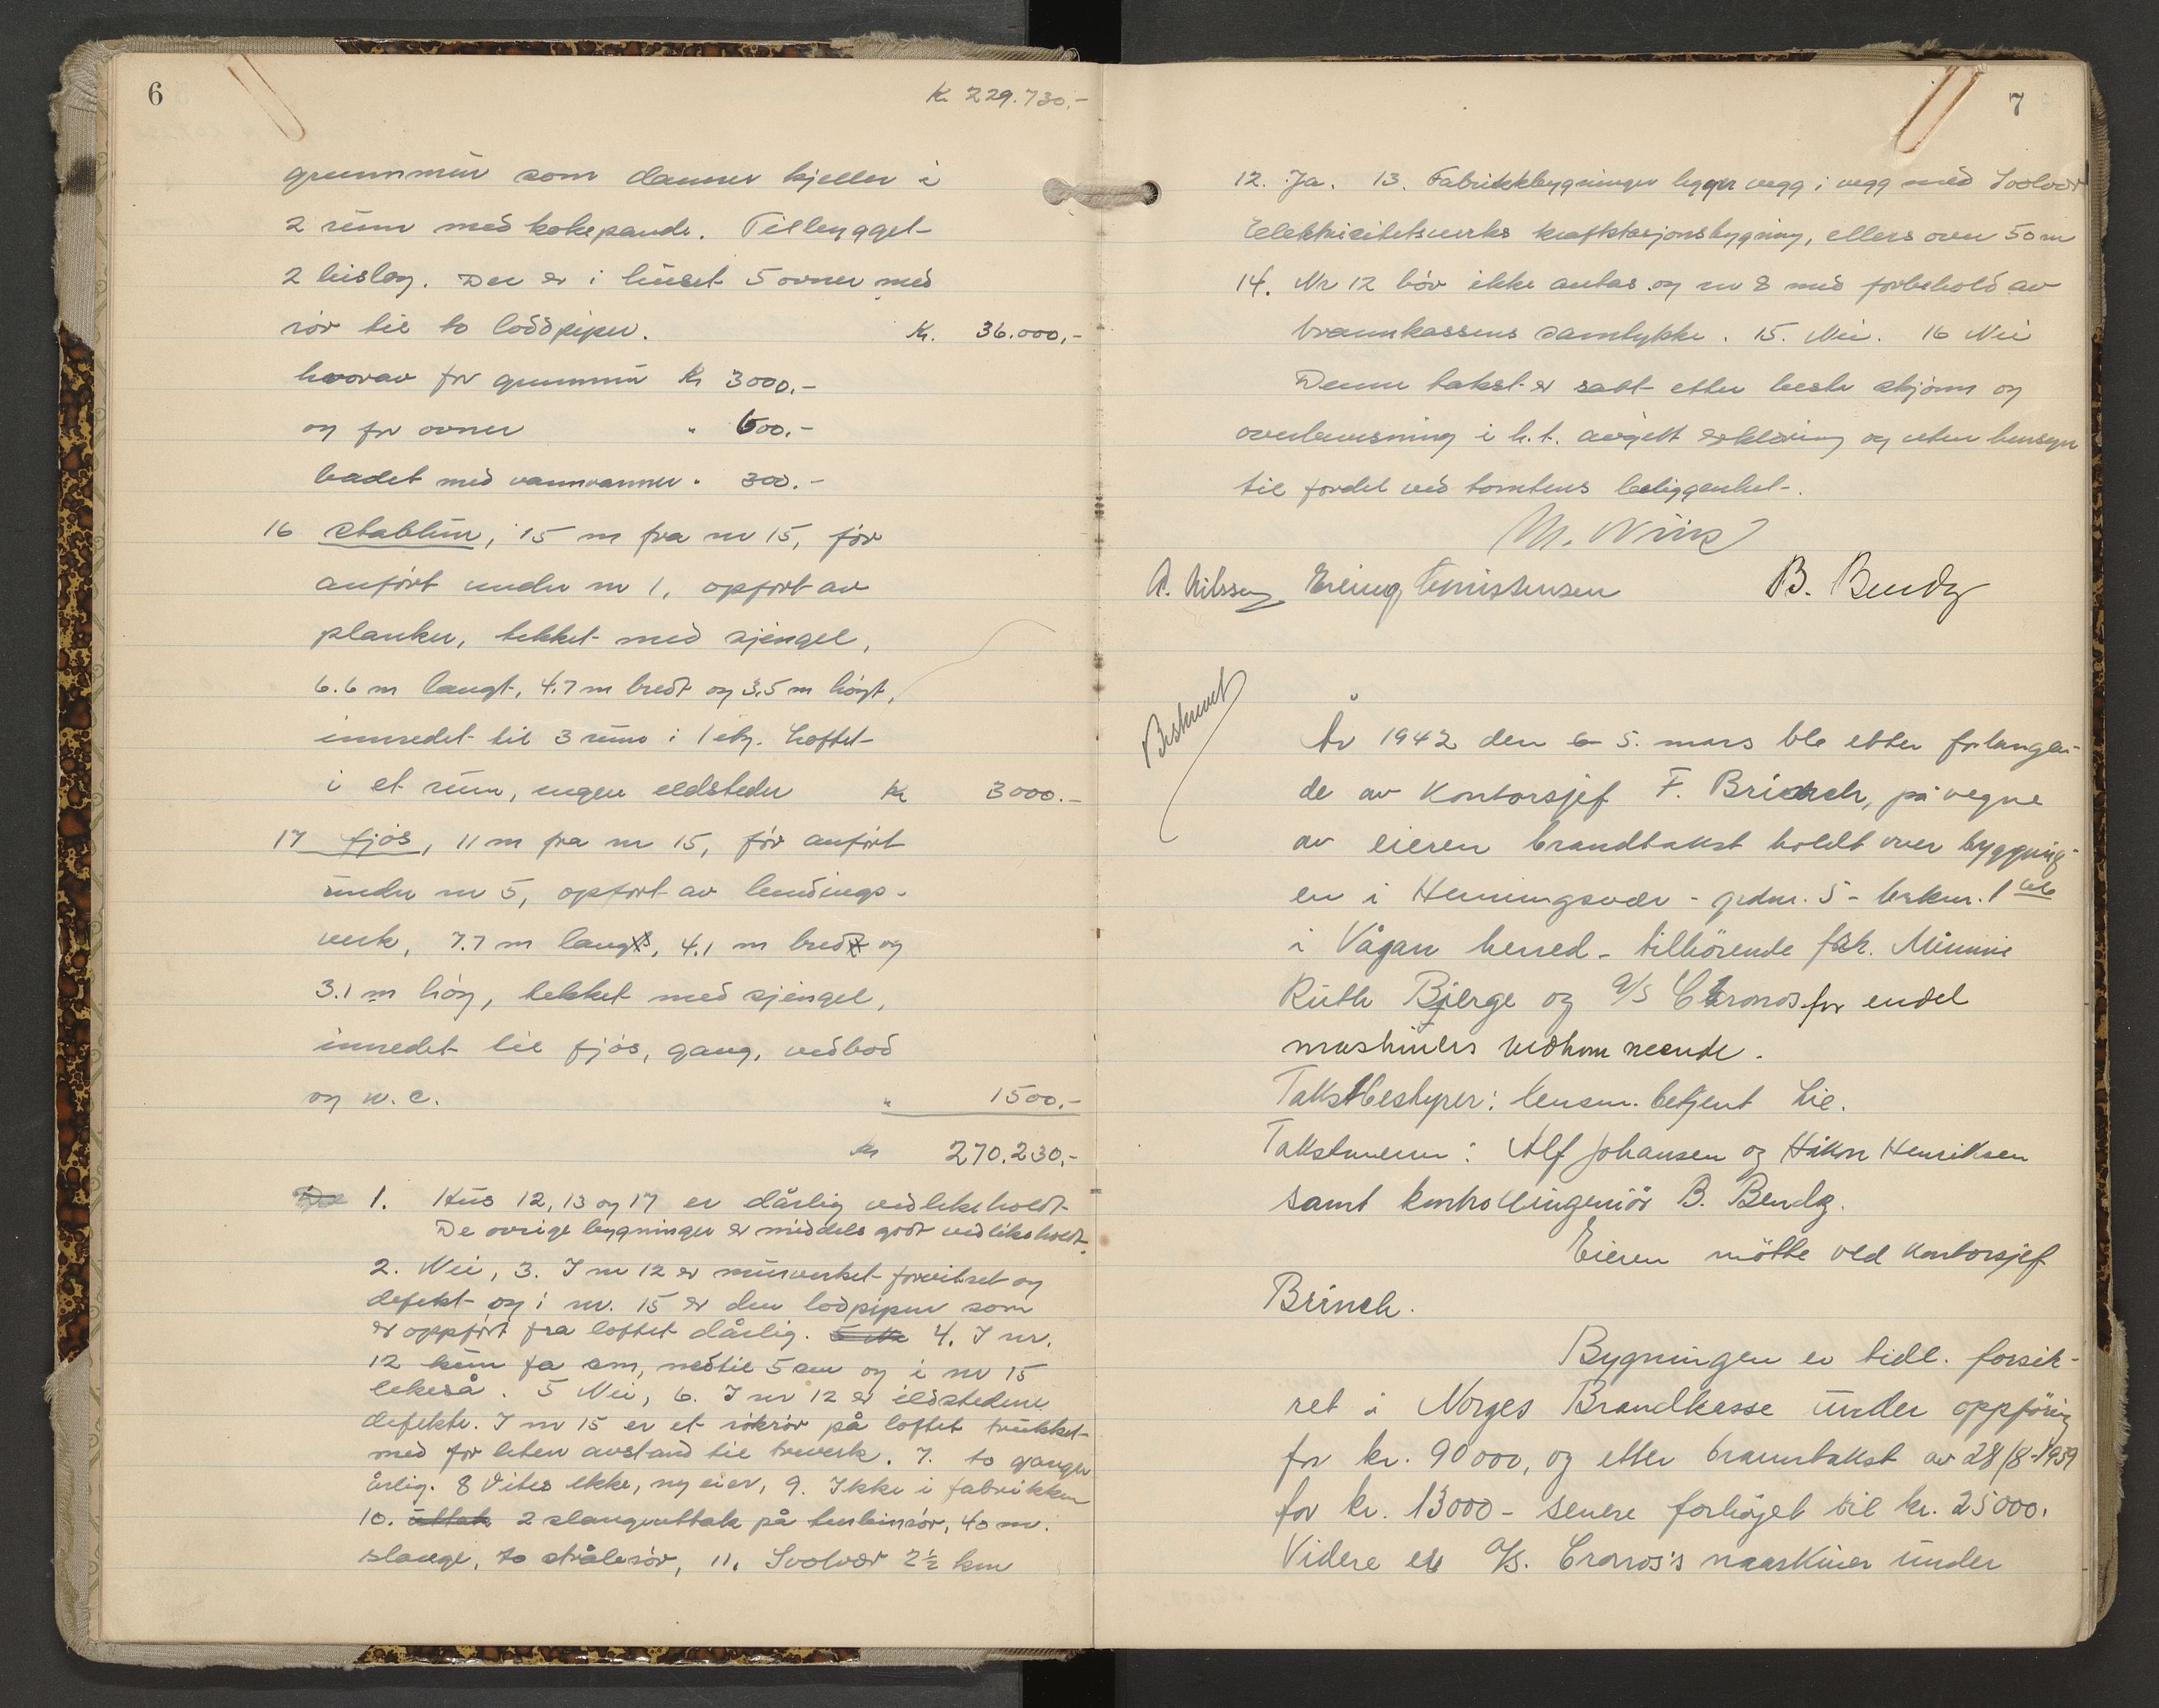 6
Kr. 229.730,-
grunnmur som danner kjeller i
2 rum med kokepande. Tilbygget
2 bislag. Der er i huset 5 ovner med
rør til to loddpiper. Kr. 36.000,-
hvorav for grunnmur Kr 3000.-
og for ovner " 600.-
badet med vannvarmer " 300.-
16 stabbur, 15 m fra nr 15, før
anført under nr 1, opført av
planker, tekket med sjengel,
6.6 m langt, 4.7 m bredt og 3,5 m høyt,
innredet til 3 rum i 1 etg. Loftet
i et rum, ingen eldsteder Kr 3000.-
17 fjøs, 11 m fra nr 15, før anført
under nr 5, opført av bindings-
verk, 7.7 m lang, 4.1 m bred og
3.1 m høy, tekket med sjengel,
innredet til fjøs, gang, vedbod
og w.c. " 1500.-
Kr 270.230,-
De 1. Hus 12, 13 og 17 er dårlig vedlikeholdt
De øvrige bygninger er middels godt vedlikeholdt.
2. Nei, 3. I nr 12 er murverket forvitret og
defekt og i nr. 15 er den lodpipen som
er oppført fra loftet dårlig. 4. I nr.
12 kun fa cm, nedtil 5 cm og i nr 15
likeså. 5 Nei, 6. I nr 12 er ildstedene
defekte. I nr 15 er et røkrør på loftet trukket
med for liten avstand til treverk. 7. to ganger
årlig. 8 Vites ikke, ny eier, 9. Ikke i fabrikken
10. uttak 2 slangeuttak på turbinrør, 40 m.
slange, to strålerør, 11. Svolvær 2½ km
7
12. Ja. 13. Fabrikkbygningen ligger vegg i vegg med Svolvær
Elektricitetsverks kraftstasjonsbygning, ellers over 50 m
14. Nr 12 bør ikke antas og nr 8 med forbehold av
brannkassens samtykke. 15. Nei. 16 Nei
Denne takst er satt etter beste skjønn og
overbevisning i h.t. avgitt erklæring og uten hensyn
til fordel ved tomtens beliggenhet.
A. Nilssen Erling Christensen B. Bendz
Beskrevet
År 1942 den 6 5. mars ble etter forlangen-
de av kontorsjef F. Brinch, på vegne
av eieren brandtakst holdt over bygging-
en i Henningsvær - grdnr. 5 - brknr. 1
i Vågan herred - tilhörende frk. Minnie
Ruth Bjerge og A/S Cronos for endel
maskiners vedkommende.
Takstbestyrer: lensm. betjent Lie.
Takstmenn: Alf Johansen og Håkon Henriksen
samt kontrollingeniör B. Bendz.
Eieren mötte ved kontorsjef
Brinch.
Bygningen er tidl. forsik-
ret i Norges Brandkasse under oppföring
for kr. 90000, og etter branntakst av 28/8-1939
for kr. 13000 - senere forhöjet til kr. 25000.
Videre er A/S. Cronos's maskiner under